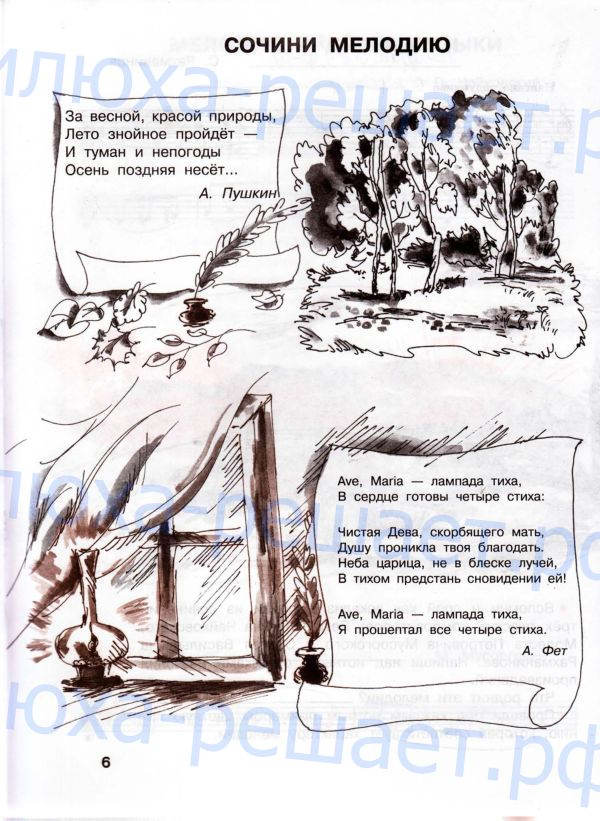 СОЧИНИ МЕЛОДИЮ
За весной, красой природы,
Лето знойное пройдёт —
И туман и непогоды
Осень поздняя несёт...
А. Пушкин
Ave, Maria — лампада тиха,
В сердце готовы четыре стиха:
Чистая Дева, скорбящего мать,
Душу проникла твоя благодать.
Неба царица, не в блеске лучей,
В тихом предстань сновидении ей!
Ave, Maria — лампада тиха,
Я прошептал все четыре стиха.
А. Фет
6
илюха-решает.рф
илюха-решает.рф
илюха-решает.рф